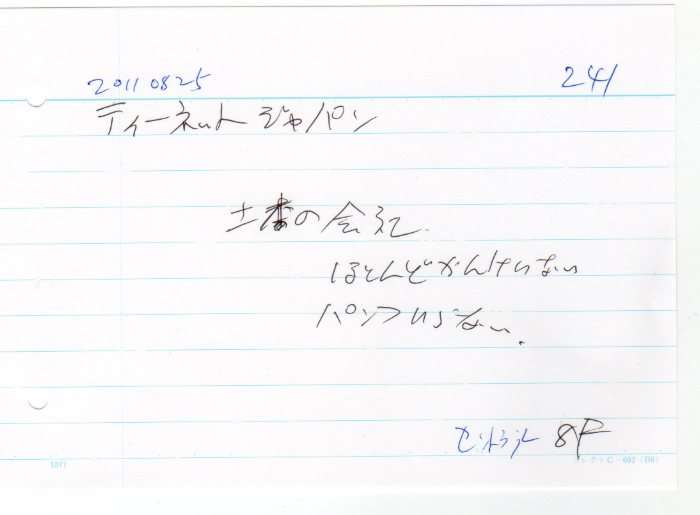 20110825 241
ティーネットジャパン
土木の会社
ほとんどかんけいない
パンフいらない.
セントラル 8F
10行 コレクトC-602(B6)